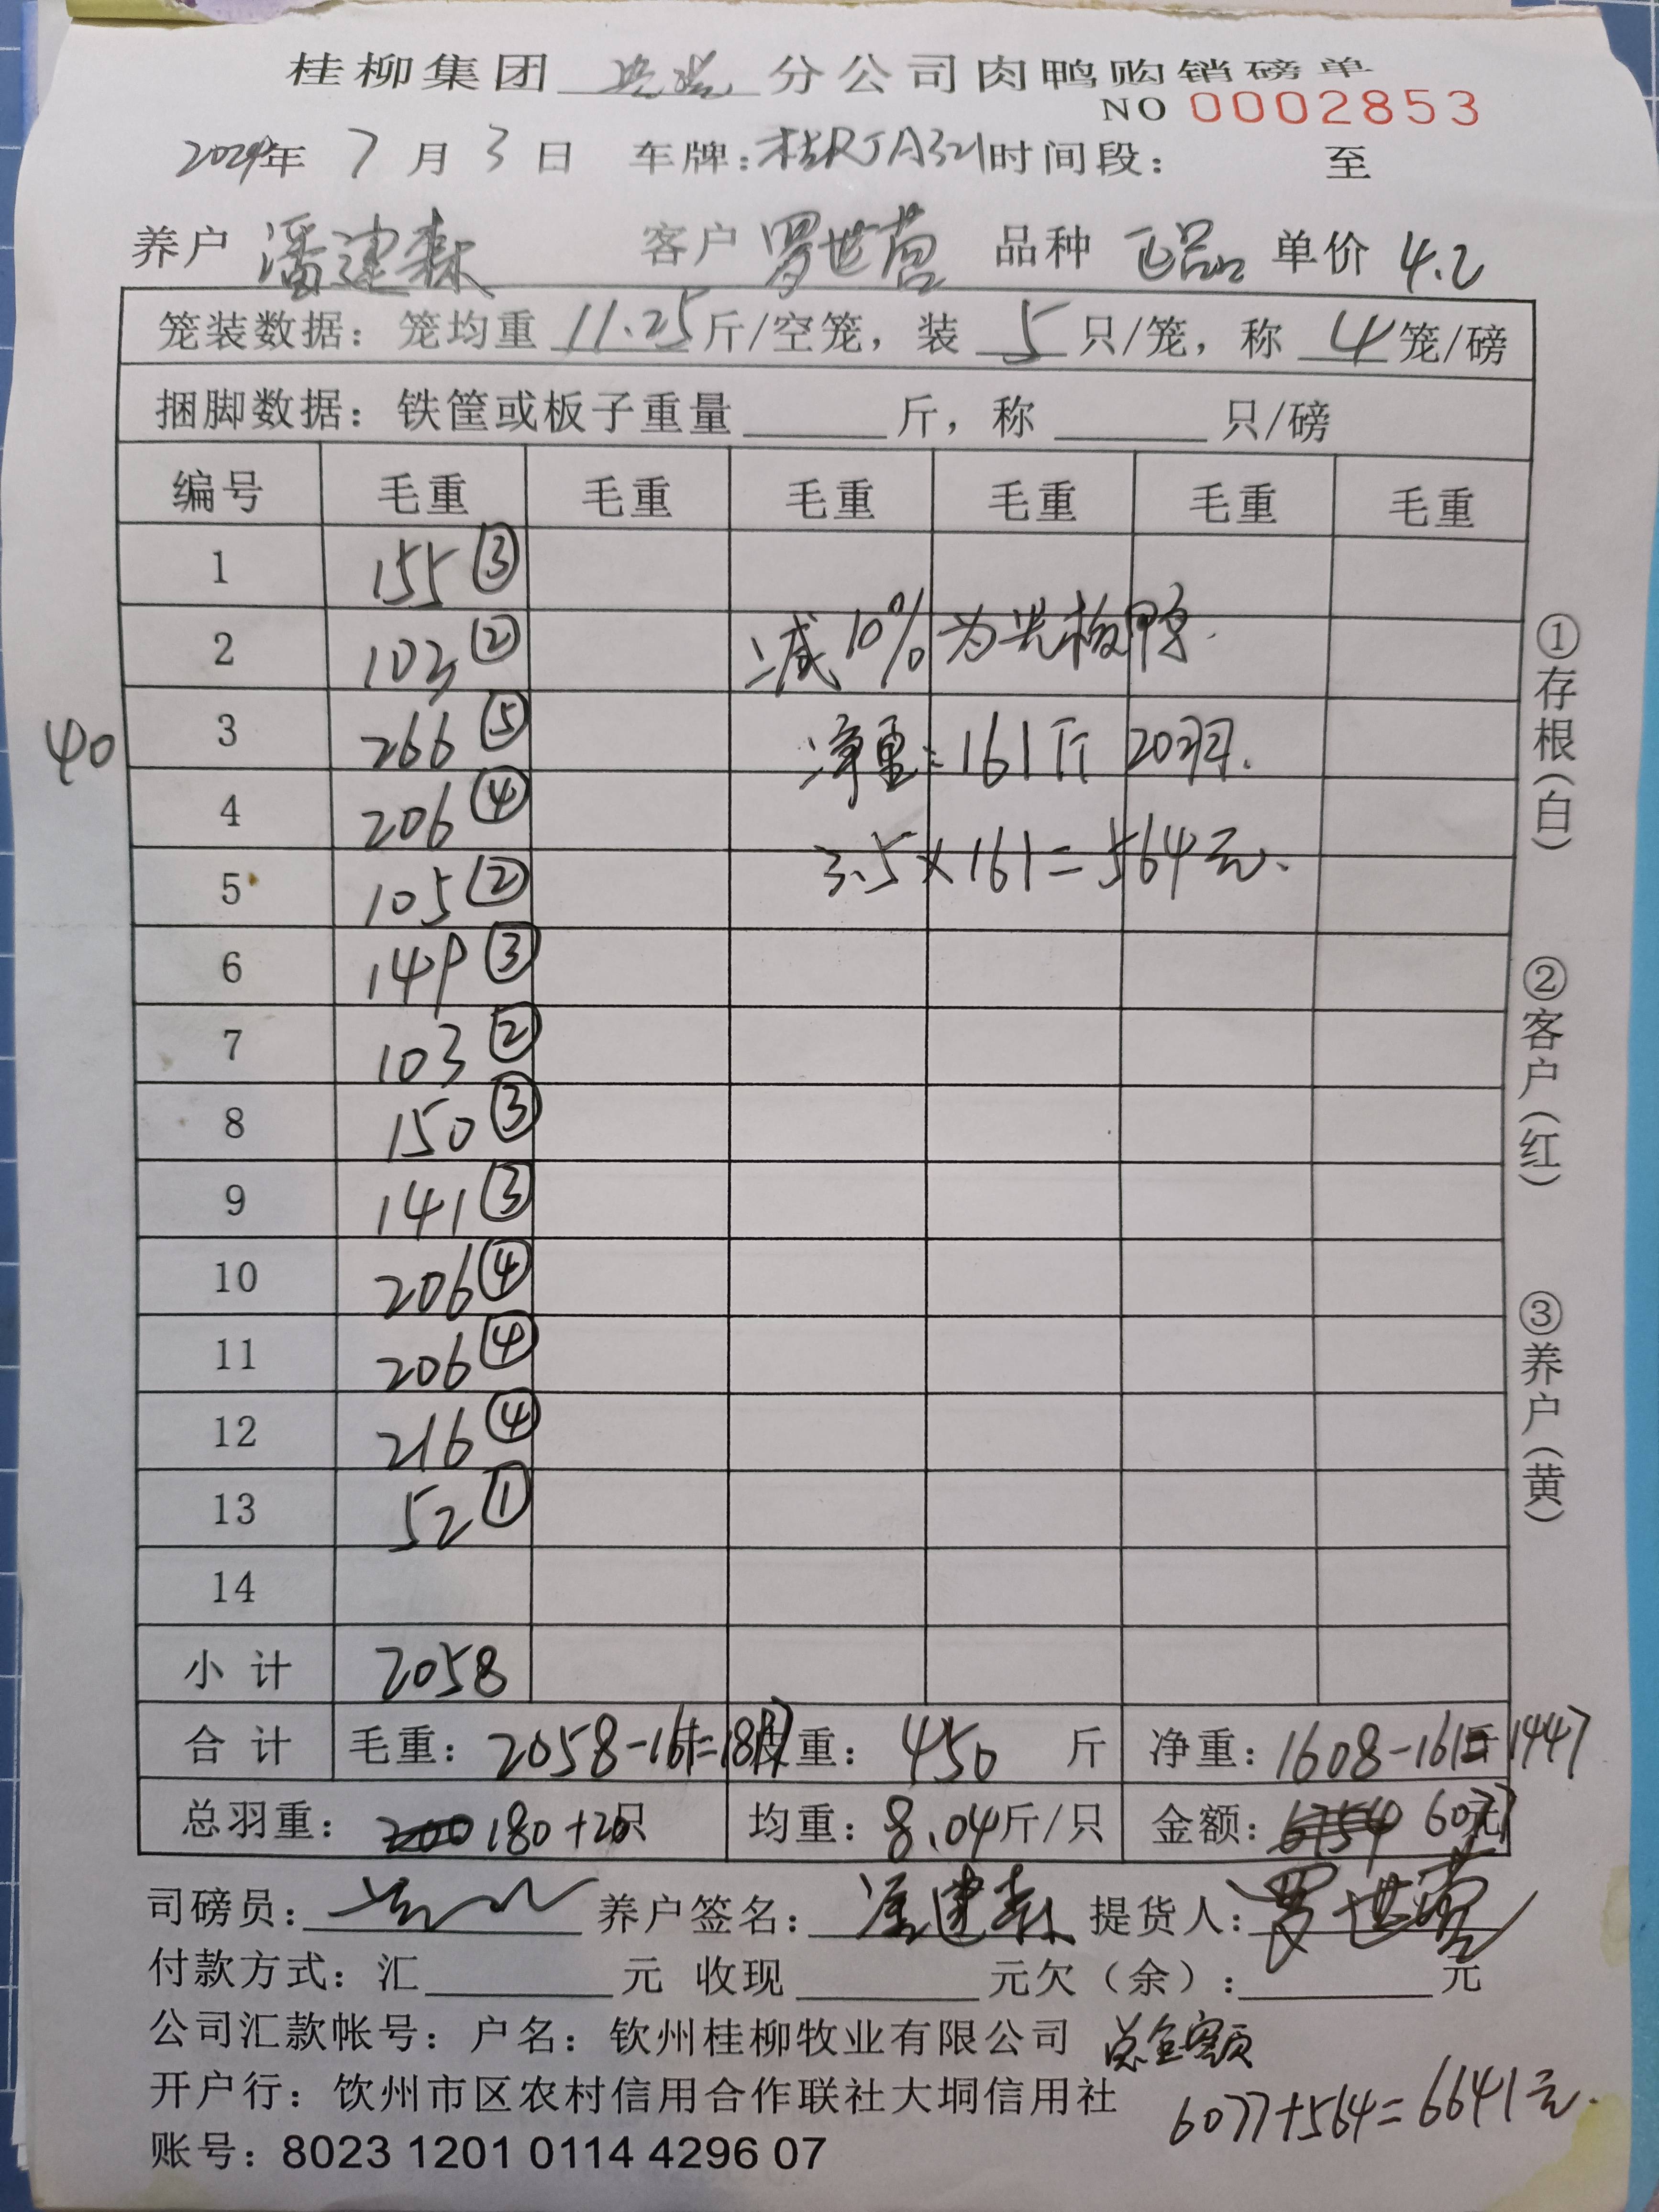 桂柳集团 分公司肉鸭购销磅单
NO 0002853
2024年 7 月 3 日 车牌:桂RJA321时间段: 至
养户 潘建森 客户 罗世营 品种 正品 单价 4.2
笼装数据: 笼均重 11.25 斤/空笼, 装 5 只/笼, 称 4 笼/磅
捆脚数据: 铁筐或板子重量 斤, 称 只/磅
编号 毛重 毛重 毛重 毛重 毛重 毛重
1 155 ③
2 103 ② 减 10% 为 鸭.
40 3 266 ⑤ 净重:161斤 20羽.
4 206 ④
5 105 ② 3.5×161=564元.
6 149 ③
7 103 ②
8 150 ③
9 141 ③
10 206 ④
11 206 ④
12 216 ④
13 52 ①
14
小 计 2058
合 计 毛重: 2058-161= 皮重: 450 斤 净重: 1608-161= 1447
总羽重: 200 180+20只 均重: 8.04斤/只 金额: 6754 6077元
司磅员: 养户签名: 潘建森 提货人: 罗世营
付款方式: 汇 元 收现 元欠(余): 元
公司汇款帐号: 户名: 钦州桂柳牧业有限公司 总金额
开户行: 钦州市区农村信用合作联社大垌信用社 6077+564=6641元.
账号: 8023 1201 0114 4296 07
①存根(白)
②客户(红)
③养户(黄)